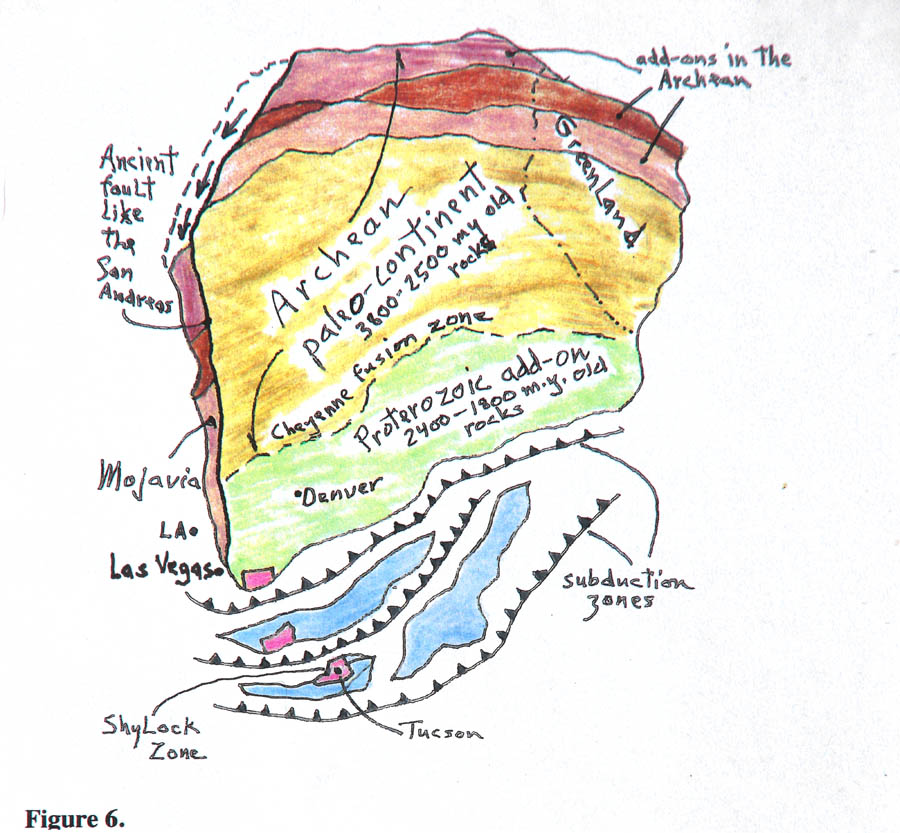 add-ons in the
Archean
Greenland
Ancient
fault
like
the
San
Andreas
Archean
paleo-continent
3800-2500 my old
rocks
Cheyenne fusion zone
Proterozoic add-on
2400-1800 m.y. old
rocks
Mojavia
Denver
LA
Las Vegas
subduction
zones
Shylock
Zone
Tucson
Figure 6.